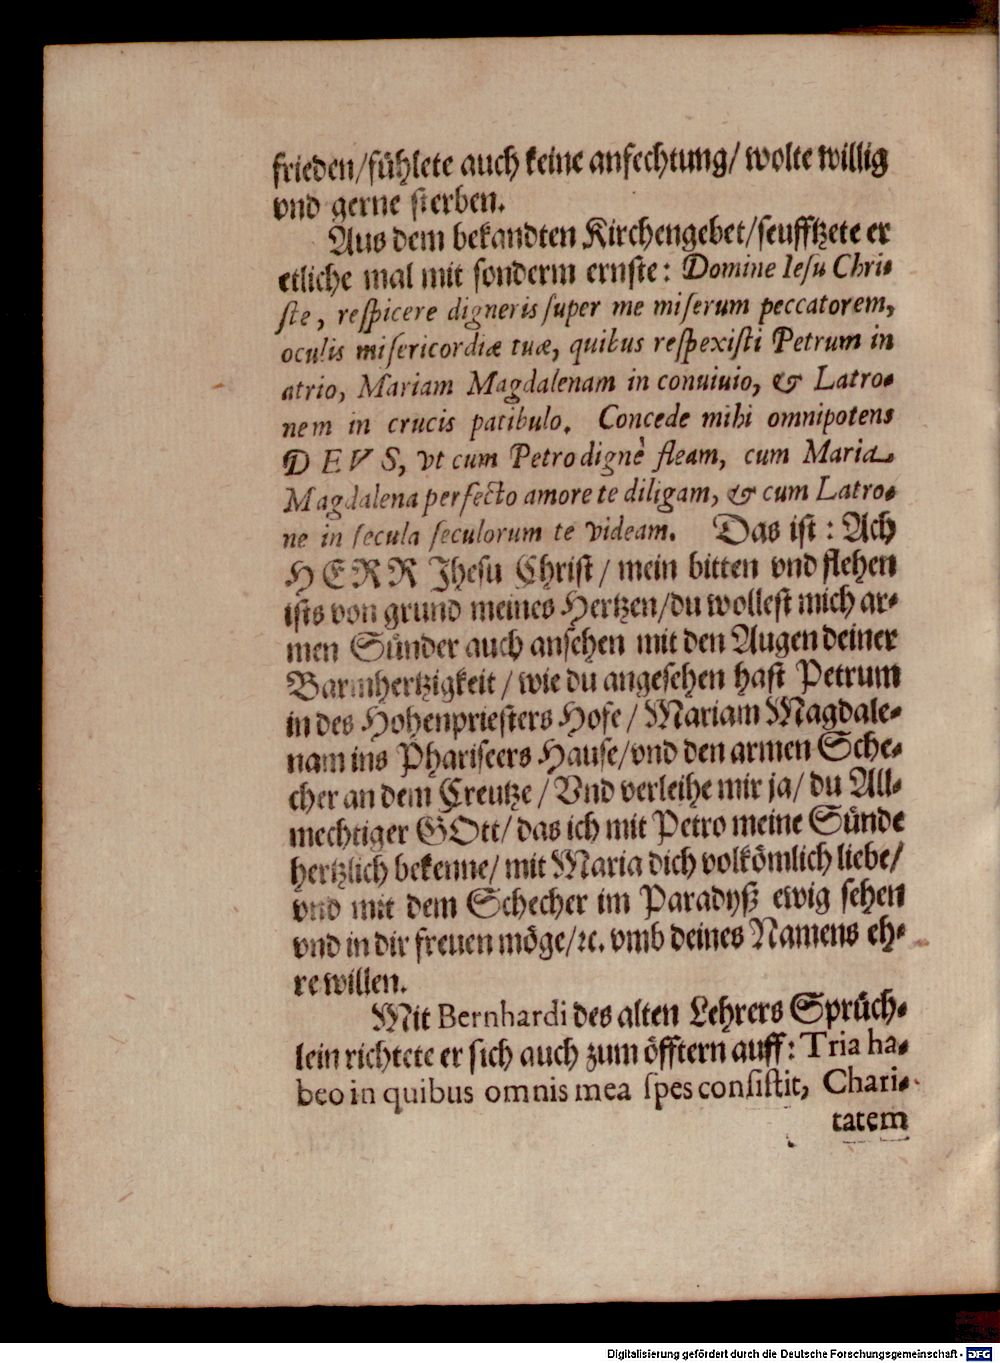 frieden/fühlete auch keine anfechtung/ wolte willig
vnd gerne sterben.
Aus dem bekandten Kirchengebet/seufftzete er
etliche mal mit sonderm ernste: Domine Iesu Chri-
ste, respicere digneris super me miserum peccatorem,
oculis misericordiæ tuæ, quibus respexisti Petrum in
atrio, Mariam Magdalenam in conuiuio, & Latro-
nem in crucis patibulo. Concede mihi omnipotens
DEVS, vt cum Petro dignè fleam, cum Maria
Magdalena perfecto amore te diligam, & cum Latro-
ne in secula seculorum te videam. Das ist: Ach
HERR Jhesu Christ/ mein bitten vnd flehen
ists von grund meines Hertzen/du wollest mich ar-
men Sünder auch ansehen mit den Augen deiner
Barmhertzigkeit/ wie du angesehen hast Petrum
in des Hohenpriesters Hofe/ Mariam Magdale-
nam ins Phariseers Hause/vnd den armen Sche-
cher an dem Creutze/ Vnd verleihe mir ja/ du All-
mechtiger GOtt/ das ich mit Petro meine Sünde
hertzlich bekenne/ mit Maria dich volkömlich liebe/
vnd mit dem Schecher im Paradyß ewig sehen
vnd in dir freuen möge/ꝛc. vmb deines Namens eh-
re willen.
Mit Bernhardi des alten Lehrers Sprüch-
lein richtete er sich auch zum öfftern auff: Tria ha-
beo in quibus omnis mea spes consistit, Chari-
tatem
Digitalisierung gefördert durch die Deutsche Forschungsgemeinschaft - DFG